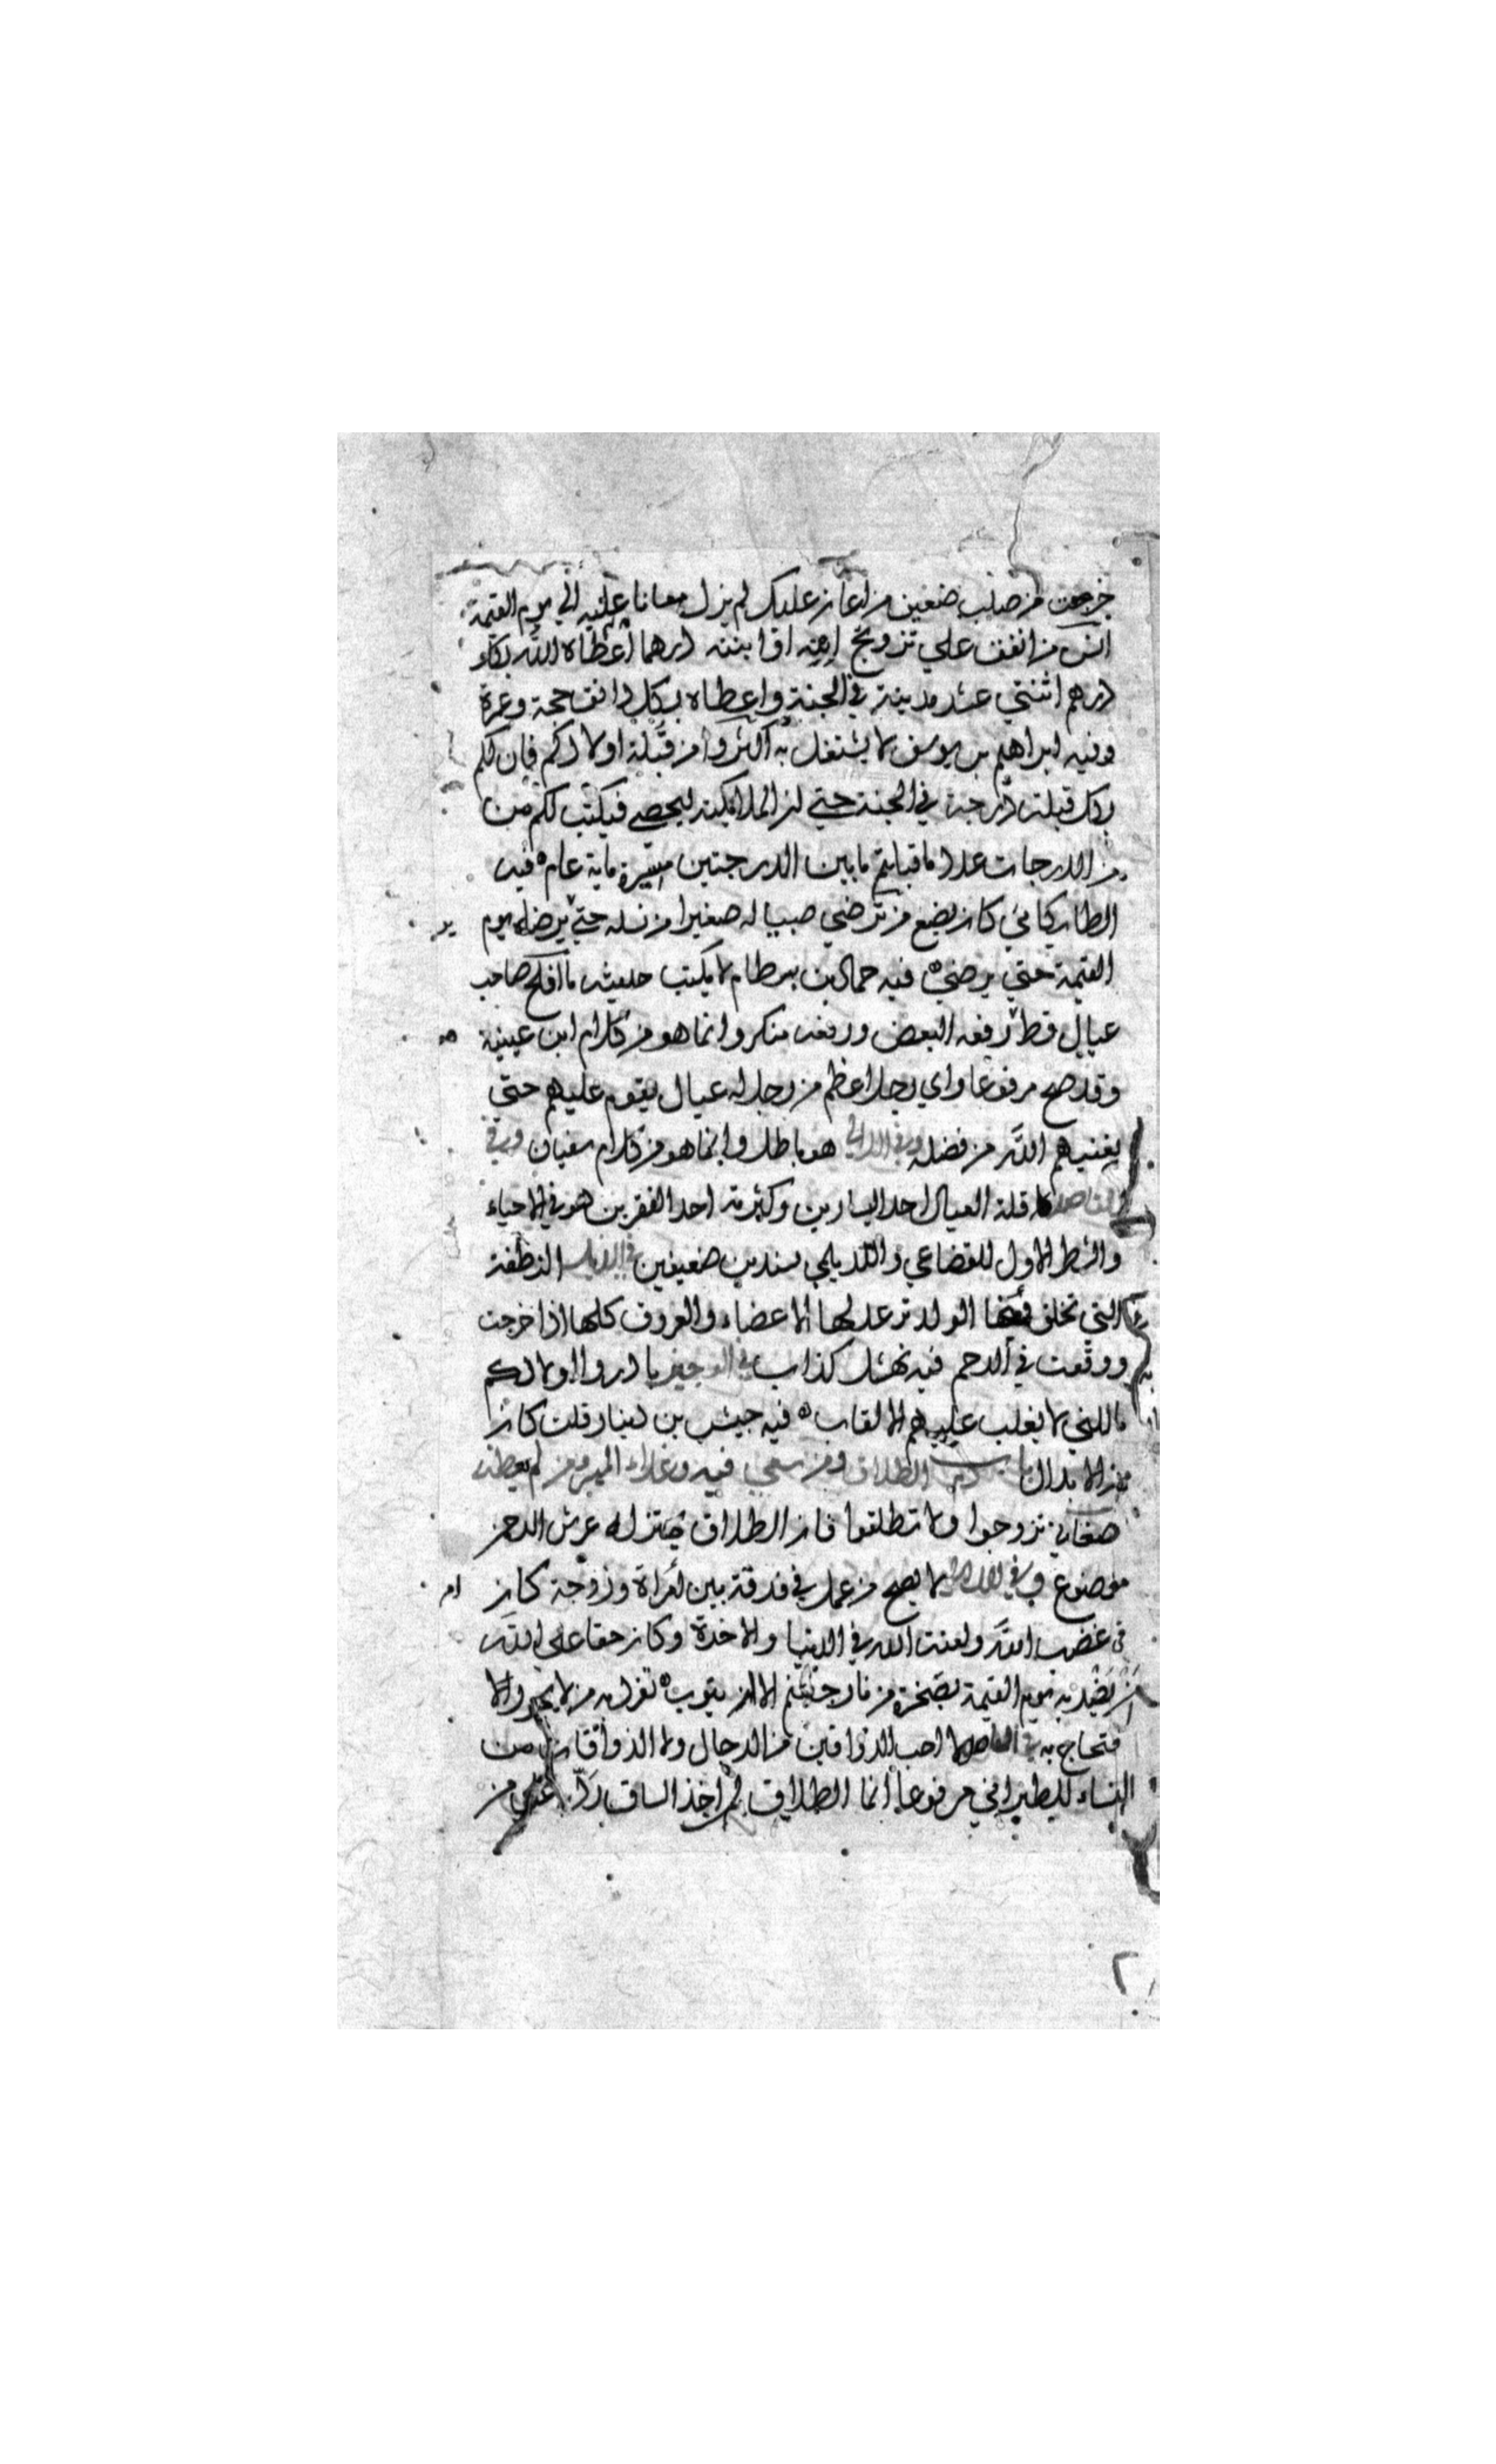 خرجت من صلب ضعيف من اعان عليك لم يزل معانا عليه الي يوم القيمة
انس من انفق علي تزويج ابنه او ابنته درهما أعطاه الله بكل
درهم اثنتي عشر مدينة في الجنة واعطاه بكل دانق حجة وعمرة
وفيه ابراهيم بن يوسف لا يشتغل به أكثروا من قبلة اولادكم فإن لكم
بكل قبلة درجة في الجنة حتي ان الملائكة ليحصي فيكتب لكم من
من الدرجات عدد ما قبلتم ما بين الدرجتين مسيرة ماية عام فيه
الطايكاني كان يضع من ترضي صبيا له صغيرا من نسله حتي يرضاه يوم
القيمة حتي يرضي فيه حماد بن بسطام لا يكتب حديثه ما افلح صاحب
عيال قط رفعه البعض ورفعه منكر وانما هو من كلام ابن عيينة
وقد صح مرفوعا واي رجل اعظم من رجل له عيال يقوم عليهم حتى
يغنيهم الله من فضله وفي اللالي هو باطل وانما هو من كلام سفيان وفي
المقاصد قلة العيال احد اليسارين وكثرته احد الفقرين هو في الاحياء
والشطر الاول للقضاعي والديلمي بسندين ضعيفين في الذيل النطفة
التي تخلق منها الولد ترعد لها الاعضاء والعروق كلها اذا خرجت
ووقعت في الرحم فيه نهشل كذاب في الوجيز بادروا اولادكم
بالكني لا يغلب عليهم الالقاب فيه حبيش بن دينار قلت كان
من الابدال باب ذم الطلاق ومن سعي فيه
صغاني تزوجوا ولا تطلقوا فان الطلاق يهتز له عرش الرحمن
موضوع وفي لا يصح من عمل في فرقة بين امرأة وزوجة كان
في غضب الله ولعنة الله في الدنيا والاخرة وكان حقا علي الله
ان يضربه يوم القيمة بصخرة من نار جهنم الا ان يتوب تفرد به من لا يجوز الا
حتجاج به في المقاصد لا احب الذواقين من الرجال ولا الذواقات من
النساء للطبراني مرفوعا انما الطلاق لمن اخذ الساق من